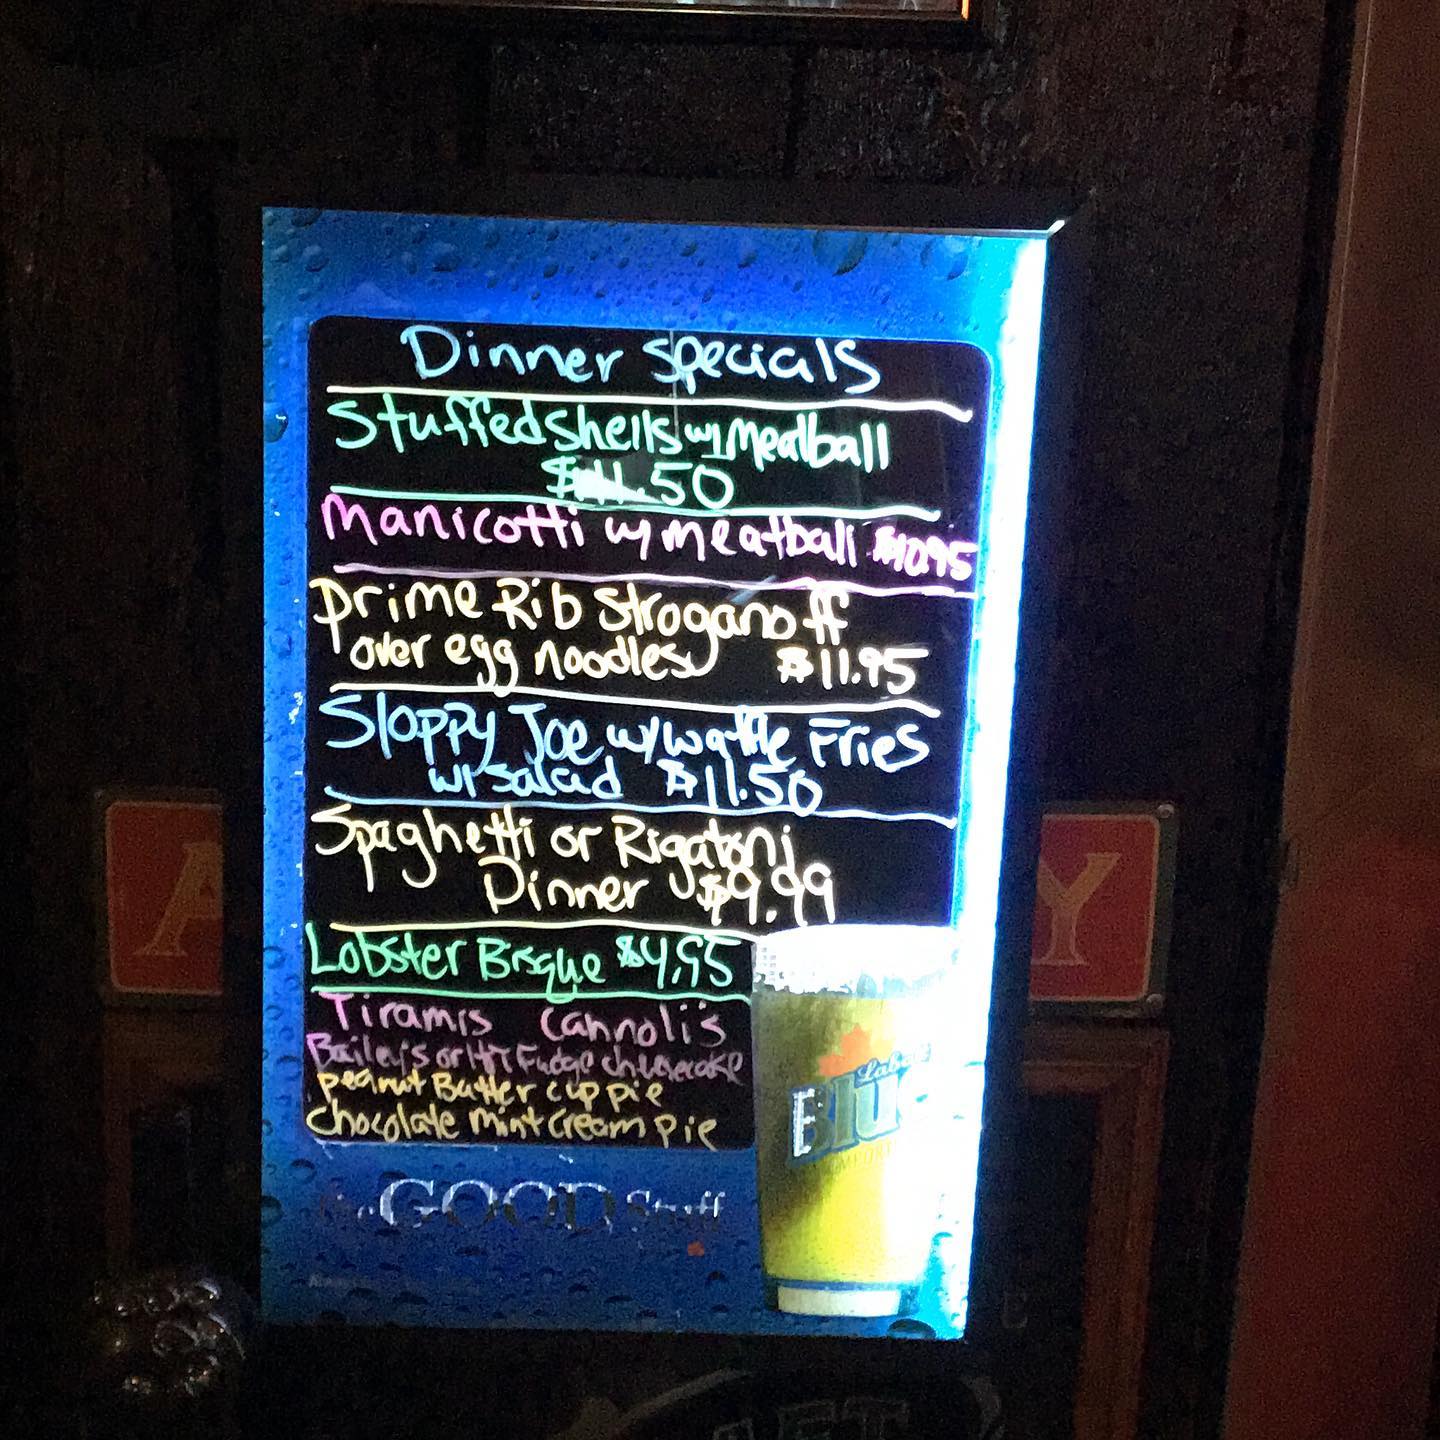 Dinner Specials
Stuffed Shells w/ Meatball
$11.50
Manicotti w/ meatball $10.95
Prime Rib Stroganoff
over egg noodles $11.95
Sloppy Joe w/ waffle Fries
w/ salad $11.50
Spaghetti or Rigatoni
Dinner $9.99
Lobster Bisque $4.95
Tiramis Cannoli's
Bailey's or Hot Fudge cheesecake
Peanut Butter cup pie
Chocolate Mint Cream Pie
A
Y
Labatt
Blue
IMPORT
the GOOD Stuff